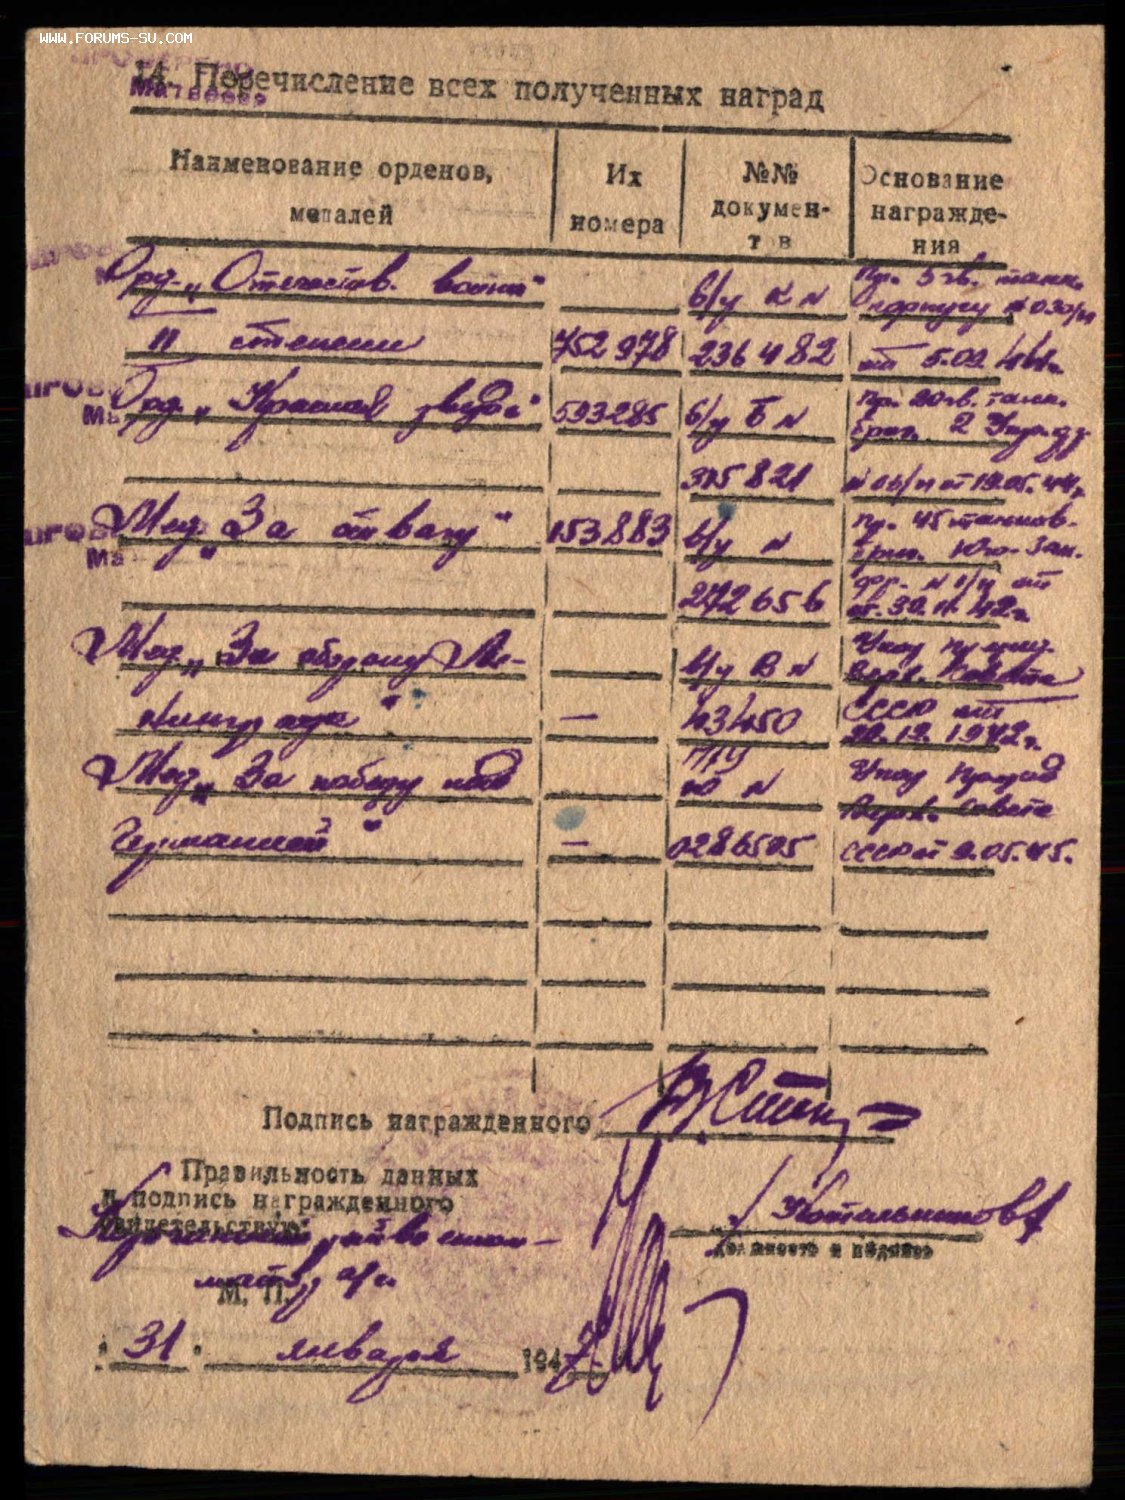 WWW.FORUMS-SU.COM
ПРОВЕРЕНО
14. Перечисление всех полученных наград
Наименование орденов, медалей
Их номера
№№ документ в
Основание награждения
Орд. „Отечествен. войны"
в/у К №
Пр. 5 гв. танк.
корпусу № 030/н
II степени
752978
236482
от 5.02.44г.
Орд. „Красная звезда"
593285
в/у Б №
Пр. 20 гв. танк.
бриг. 2 Укр.
315821
от 19.05.44г.
Мед. „За отвагу"
153883
в/у №
Пр. 45 танков.
бриг. Юго-Зап.
272656
фр. № 1/н от
30.11.42г.
Мед. „За оборону Ле-
в/у В №
Указ през.
Верх. Совета
нинграда"
—
43450
СССР от
1942г.
Мед. „За победу над
Ю №
Указ Презид.
Верх. Совета
Германией"
—
0286505
СССР от 9.05.45.
Подпись награжденного
Правильность данных
и подпись награжденного
свидетельствую:
/Котельников/
Должность и подпись
М. П.
" 31 " января 1947